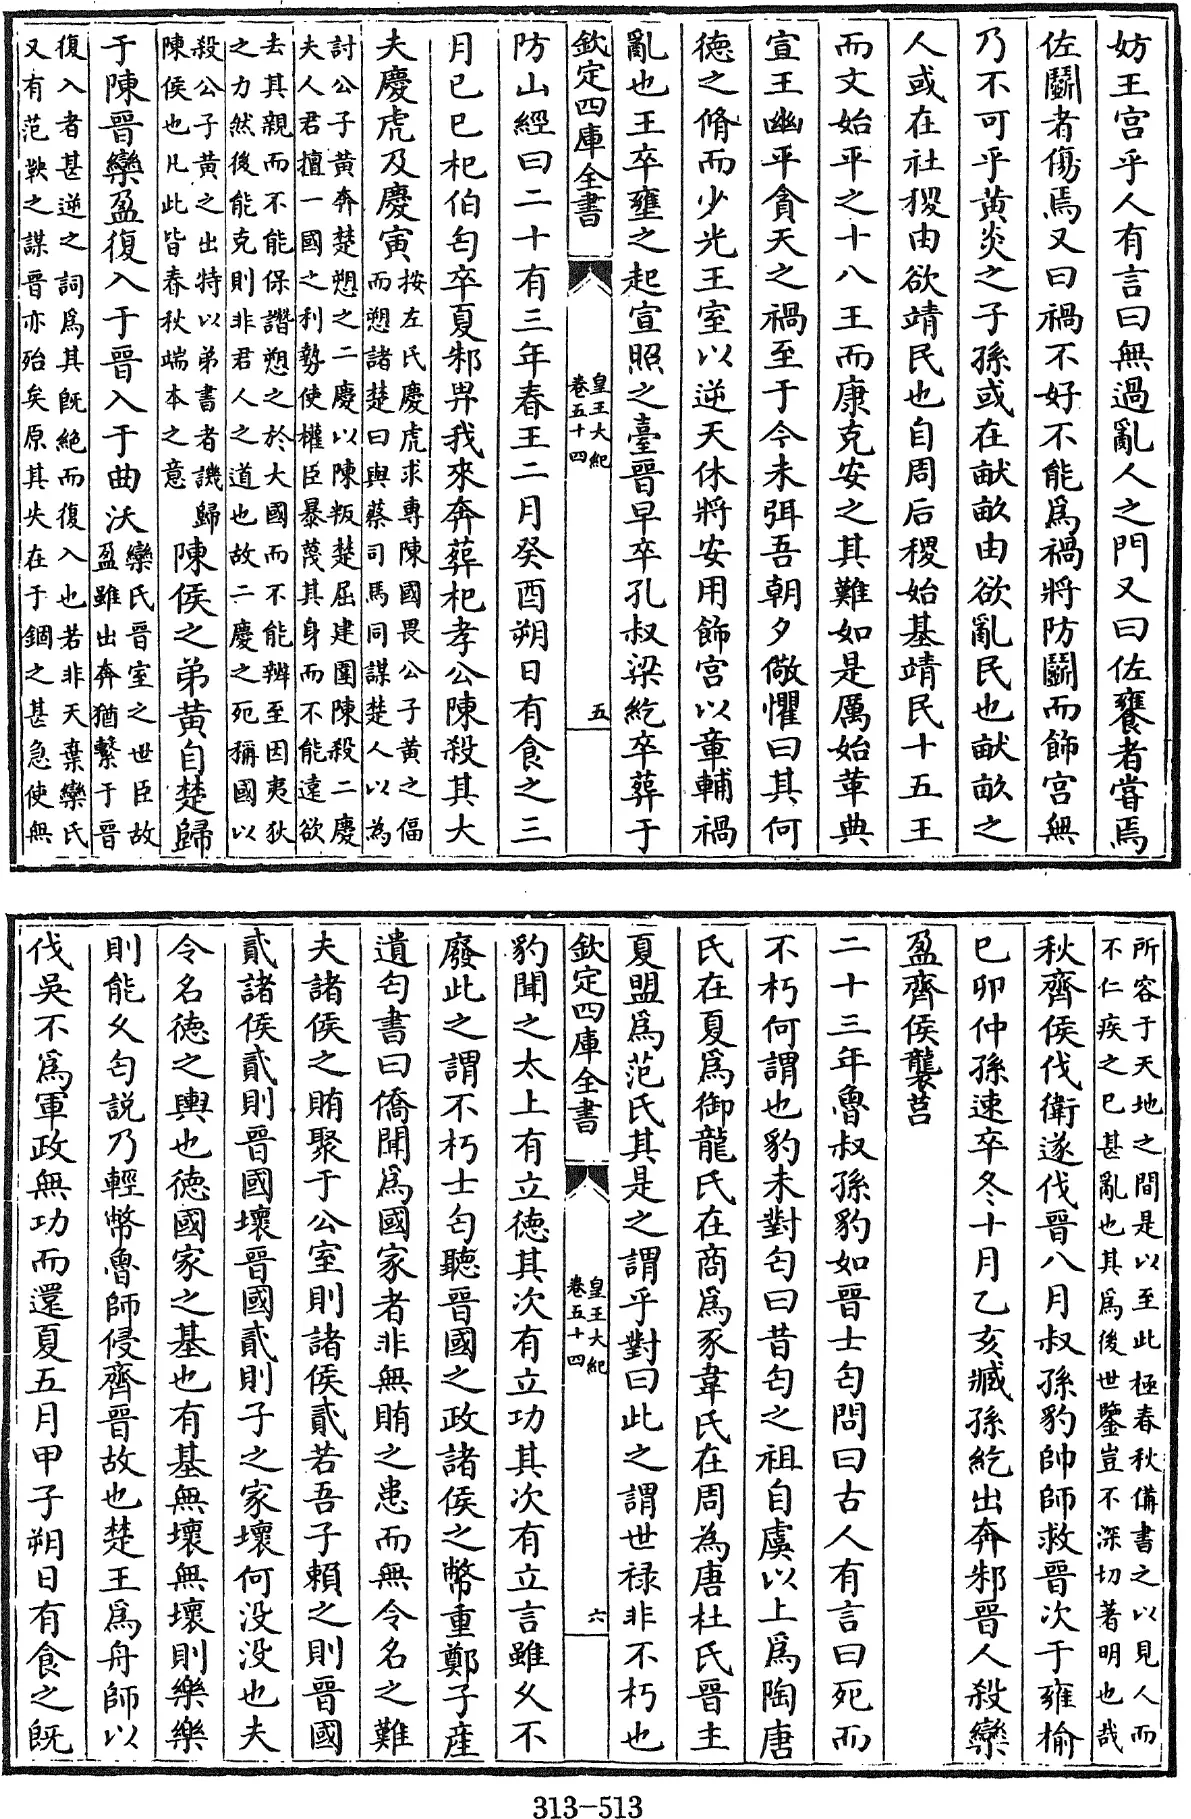 妨王宫乎人有言曰無過亂人之門又曰佐饔者甞焉
佐鬭者傷焉又曰禍不好不能爲禍將防鬭而飾宫無
乃不可乎黄炎之子孫或在献畝由欲亂民也献畝之
人或在社稷由欲靖民也自周后稷始基靖民十五王
而文始平之十八王而康克安之其難如是厲始革典
宣王幽平貪天之禍至于今未弭吾朝夕儆懼曰其何
德之脩而少光王室以逆天休將安用飾宫以章輔禍
亂也王卒壅之起宣照之臺晉早卒孔叔梁紇卒葬于
欽定四庫全書
皇王大紀
卷五十四
五
防山經曰二十有三年春王二月癸酉朔日有食之三
月已巳杞伯匄卒夏邾畀我來奔葬杞孝公陳殺其大
夫慶虎及慶寅
按左氏慶虎求專陳國畏公子黄之偪
而愬諸楚曰與蔡司馬同謀楚人以為
討公子黄奔楚愬之二慶以陳叛楚屈建圍陳殺二慶
夫人君擅一國之利勢使權臣暴蔑其身而不能遠欲
去其親而不能保譖愬之於大國而不能辨至因夷狄
之力然後能克則非君人之道也故二慶之死稱國以
殺公子黄之出特以弟書者譏歸
陳侯也凡此皆春秋端本之意
陳侯之弟黄自楚歸
于陳晉欒盈復入于晉入于曲沃
欒氏晉室之世臣故
盈雖出奔猶繫于晉
復入者甚逆之詞爲其既絶而復入也若非天棄欒氏
又有范鞅之謀晉亦殆矣原其失在于錮之甚急使無
所容于天地之間是以至此極春秋備書之以見人而
不仁疾之已甚亂也其爲後世鑒豈不深切著明也哉
秋齊侯伐衛遂伐晉八月叔孫豹帥師救晉次于雍榆
已卯仲孫速卒冬十月乙亥臧孫紇出奔邾晉人殺欒
盈齊侯襲莒
二十三年魯叔孫豹如晉士匄問曰古人有言曰死而
不朽何謂也豹未對匄曰昔匄之祖自虞以上爲陶唐
氏在夏爲御龍氏在商爲豕韋氏在周為唐杜氏晉主
夏盟爲范氏其是之謂乎對曰此之謂世禄非不朽也
欽定四庫全書
皇王大紀
卷五十四
六
豹聞之太上有立德其次有立功其次有立言雖久不
廢此之謂不朽士匄聽晉國之政諸侯之幣重鄭子産
遺匄書曰僑聞爲國家者非無賄之患而無令名之難
夫諸侯之賄聚于公室則諸侯貳若吾子賴之則晉國
貳諸侯貳則晉國壞晉國貳則子之家壞何没没也夫
令名德之輿也德國家之基也有基無壞無壞則樂樂
則能久匄説乃輕幣魯師侵齊晉故也楚王爲舟師以
伐吳不爲軍政無功而還夏五月甲子朔日有食之旣
313-513